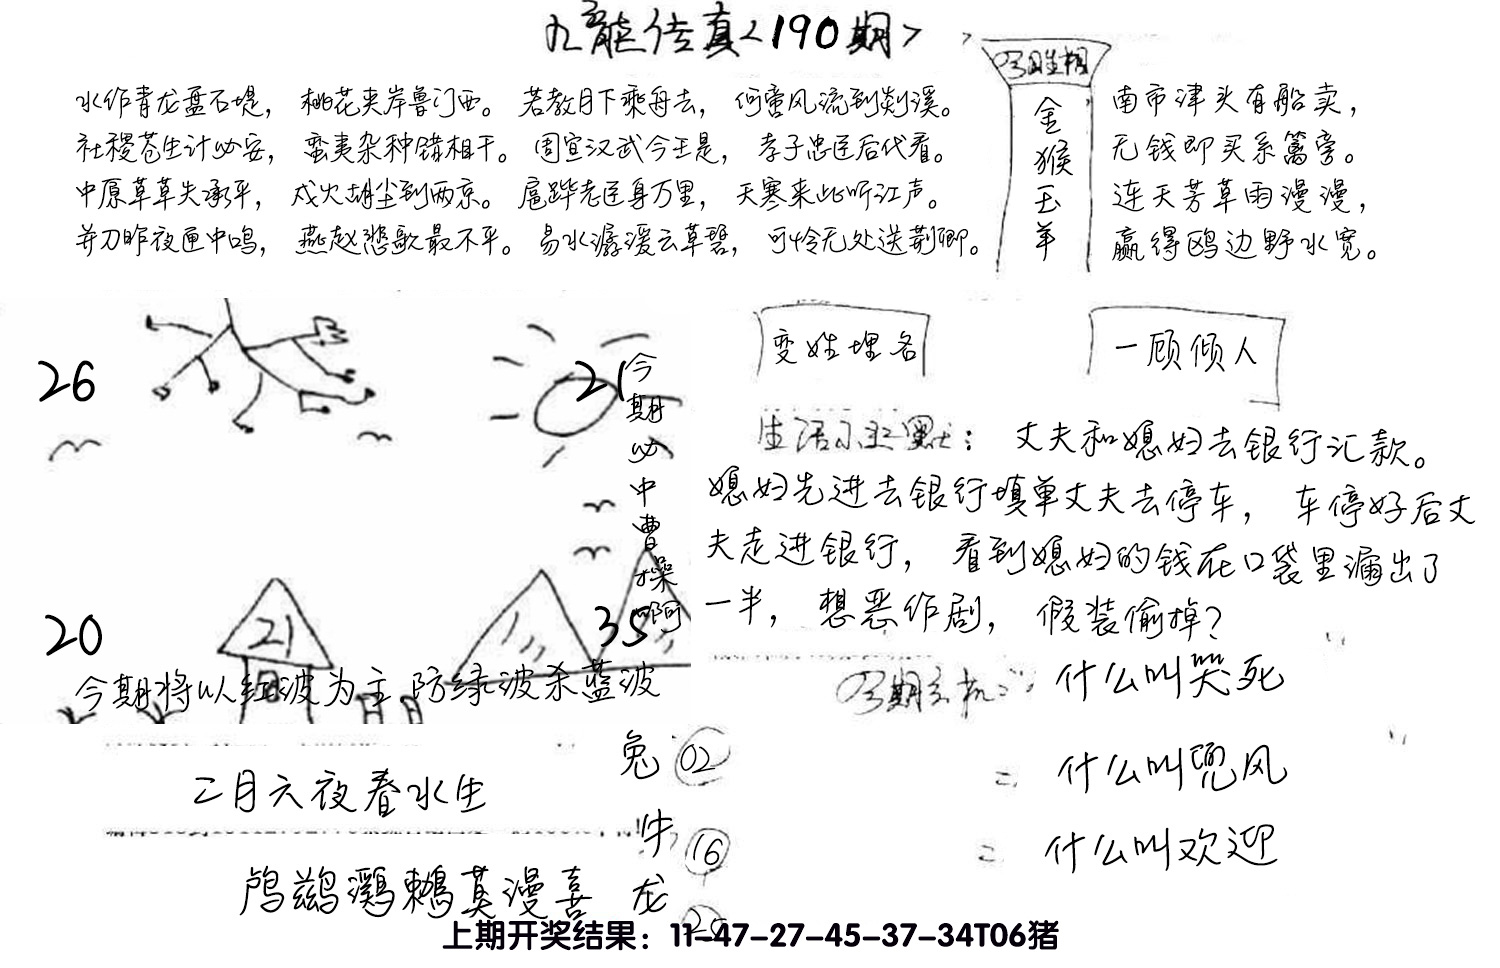 九龙传真<190期>
水作青龙盘石堤，桃花夹岸鲁门西。若教月下乘舟去，何啻风流到剡溪。
社稷苍生计必安，蛮夷杂种错相干。周宣汉武今王是，孝子忠臣后代看。
中原草草失承平，戍火胡尘到两京。扈跸老臣身万里，天寒来此听江声。
并刀昨夜匣中鸣，燕赵悲歌最不平。易水潺湲云草碧，可怜无处送荆卿。
金猴玉羊
南市津头有船卖，
无钱即买系篱旁。
连天芳草雨漫漫，
赢得鸥边野水宽。
26
21
20
21
35
今期必中曹操啊
今期将以红波为主 防绿波杀蓝波
变姓埋名
一顾倾人
生活小幽默：丈夫和媳妇去银行汇款。
媳妇先进去银行填单丈夫去停车，车停好后丈
夫走进银行，看到媳妇的钱在口袋里漏出了
一半，想恶作剧，假装偷掉？
什么叫哭死
什么叫兜风
什么叫欢迎
二月六夜春水生
鸬鹚鸂鶒莫漫喜
兔 02
牛 16
龙 25
上期开奖结果：11-47-27-45-37-34T06猪